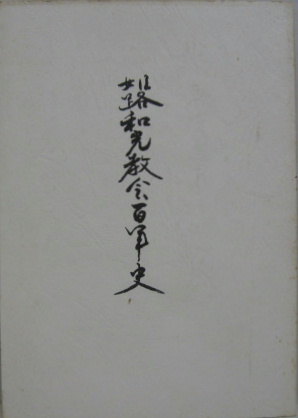 姫路和光教会百年史